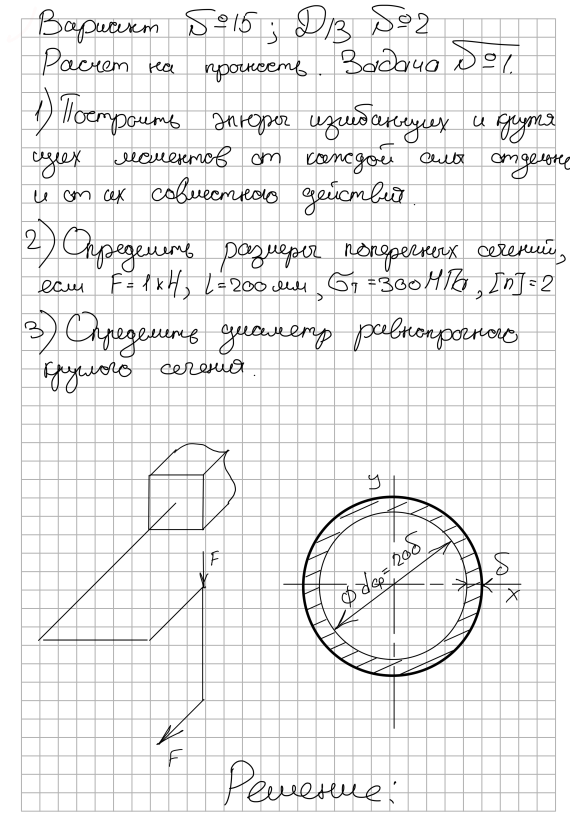 Вариант №15; Д/З №2
Расчет на прочность. Задача №1.
1) Построить эпюры изгибающих и крутя
щих моментов от каждой силы отдельно
и от их совместного действия.
2) Определить размеры поперечных сечений,
если F=1кН, l=200мм, σт=300МПа, [n]=2
3) Определить диаметр равнопрочного
круглого сечения.
y
F
ϕ dср=20δ
δ
x
F
Решение: